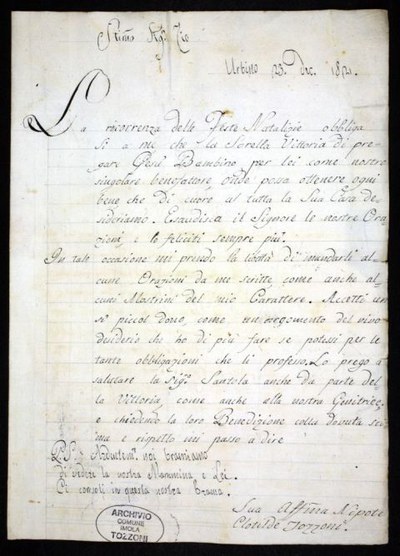 Stimo Sigr Zio
Urbino 23. Dec. 1821.
La ricorrenza delle Feste Natalizie obbliga
sì a me, che la Sorella Vittoria di pre-
gare Gesù Bambino per lei come nostro
singolare benefattore, onde possa ottenere ogni
bene che di cuore al tutta la Sua Casa de-
sideriamo. Esaudisca il Signore le nostre Ora-
zioni, e lo feliciti sempre più.
In tale occasione mi prendo la libertà di mandarli al-
cune Orazioni da me scritte, come anche al-
cuni Mostrini del mio Carattere. Accetti un
sì piccol dono, come un argomento del vivo
desiderio che ho di più fare se potessi per le
tante obbligazioni che li professo. Lo prego a
salutare la Sigra Santola anche da parte del-
la Vittoria, come anche alla nostra Genitrice,
e chiedendo la loro Benedizione colla dovuta sti-
ma e rispetto mi passo a dire
P.S. noi bramiamo
Di vedere la nostra Mammina, e Lei.
Ci consoli in questa nostra brama.
Sua Affma Nipote
Clotilde Tozzoni
ARCHIVIO
COMUNE
IMOLA
TOZZONI